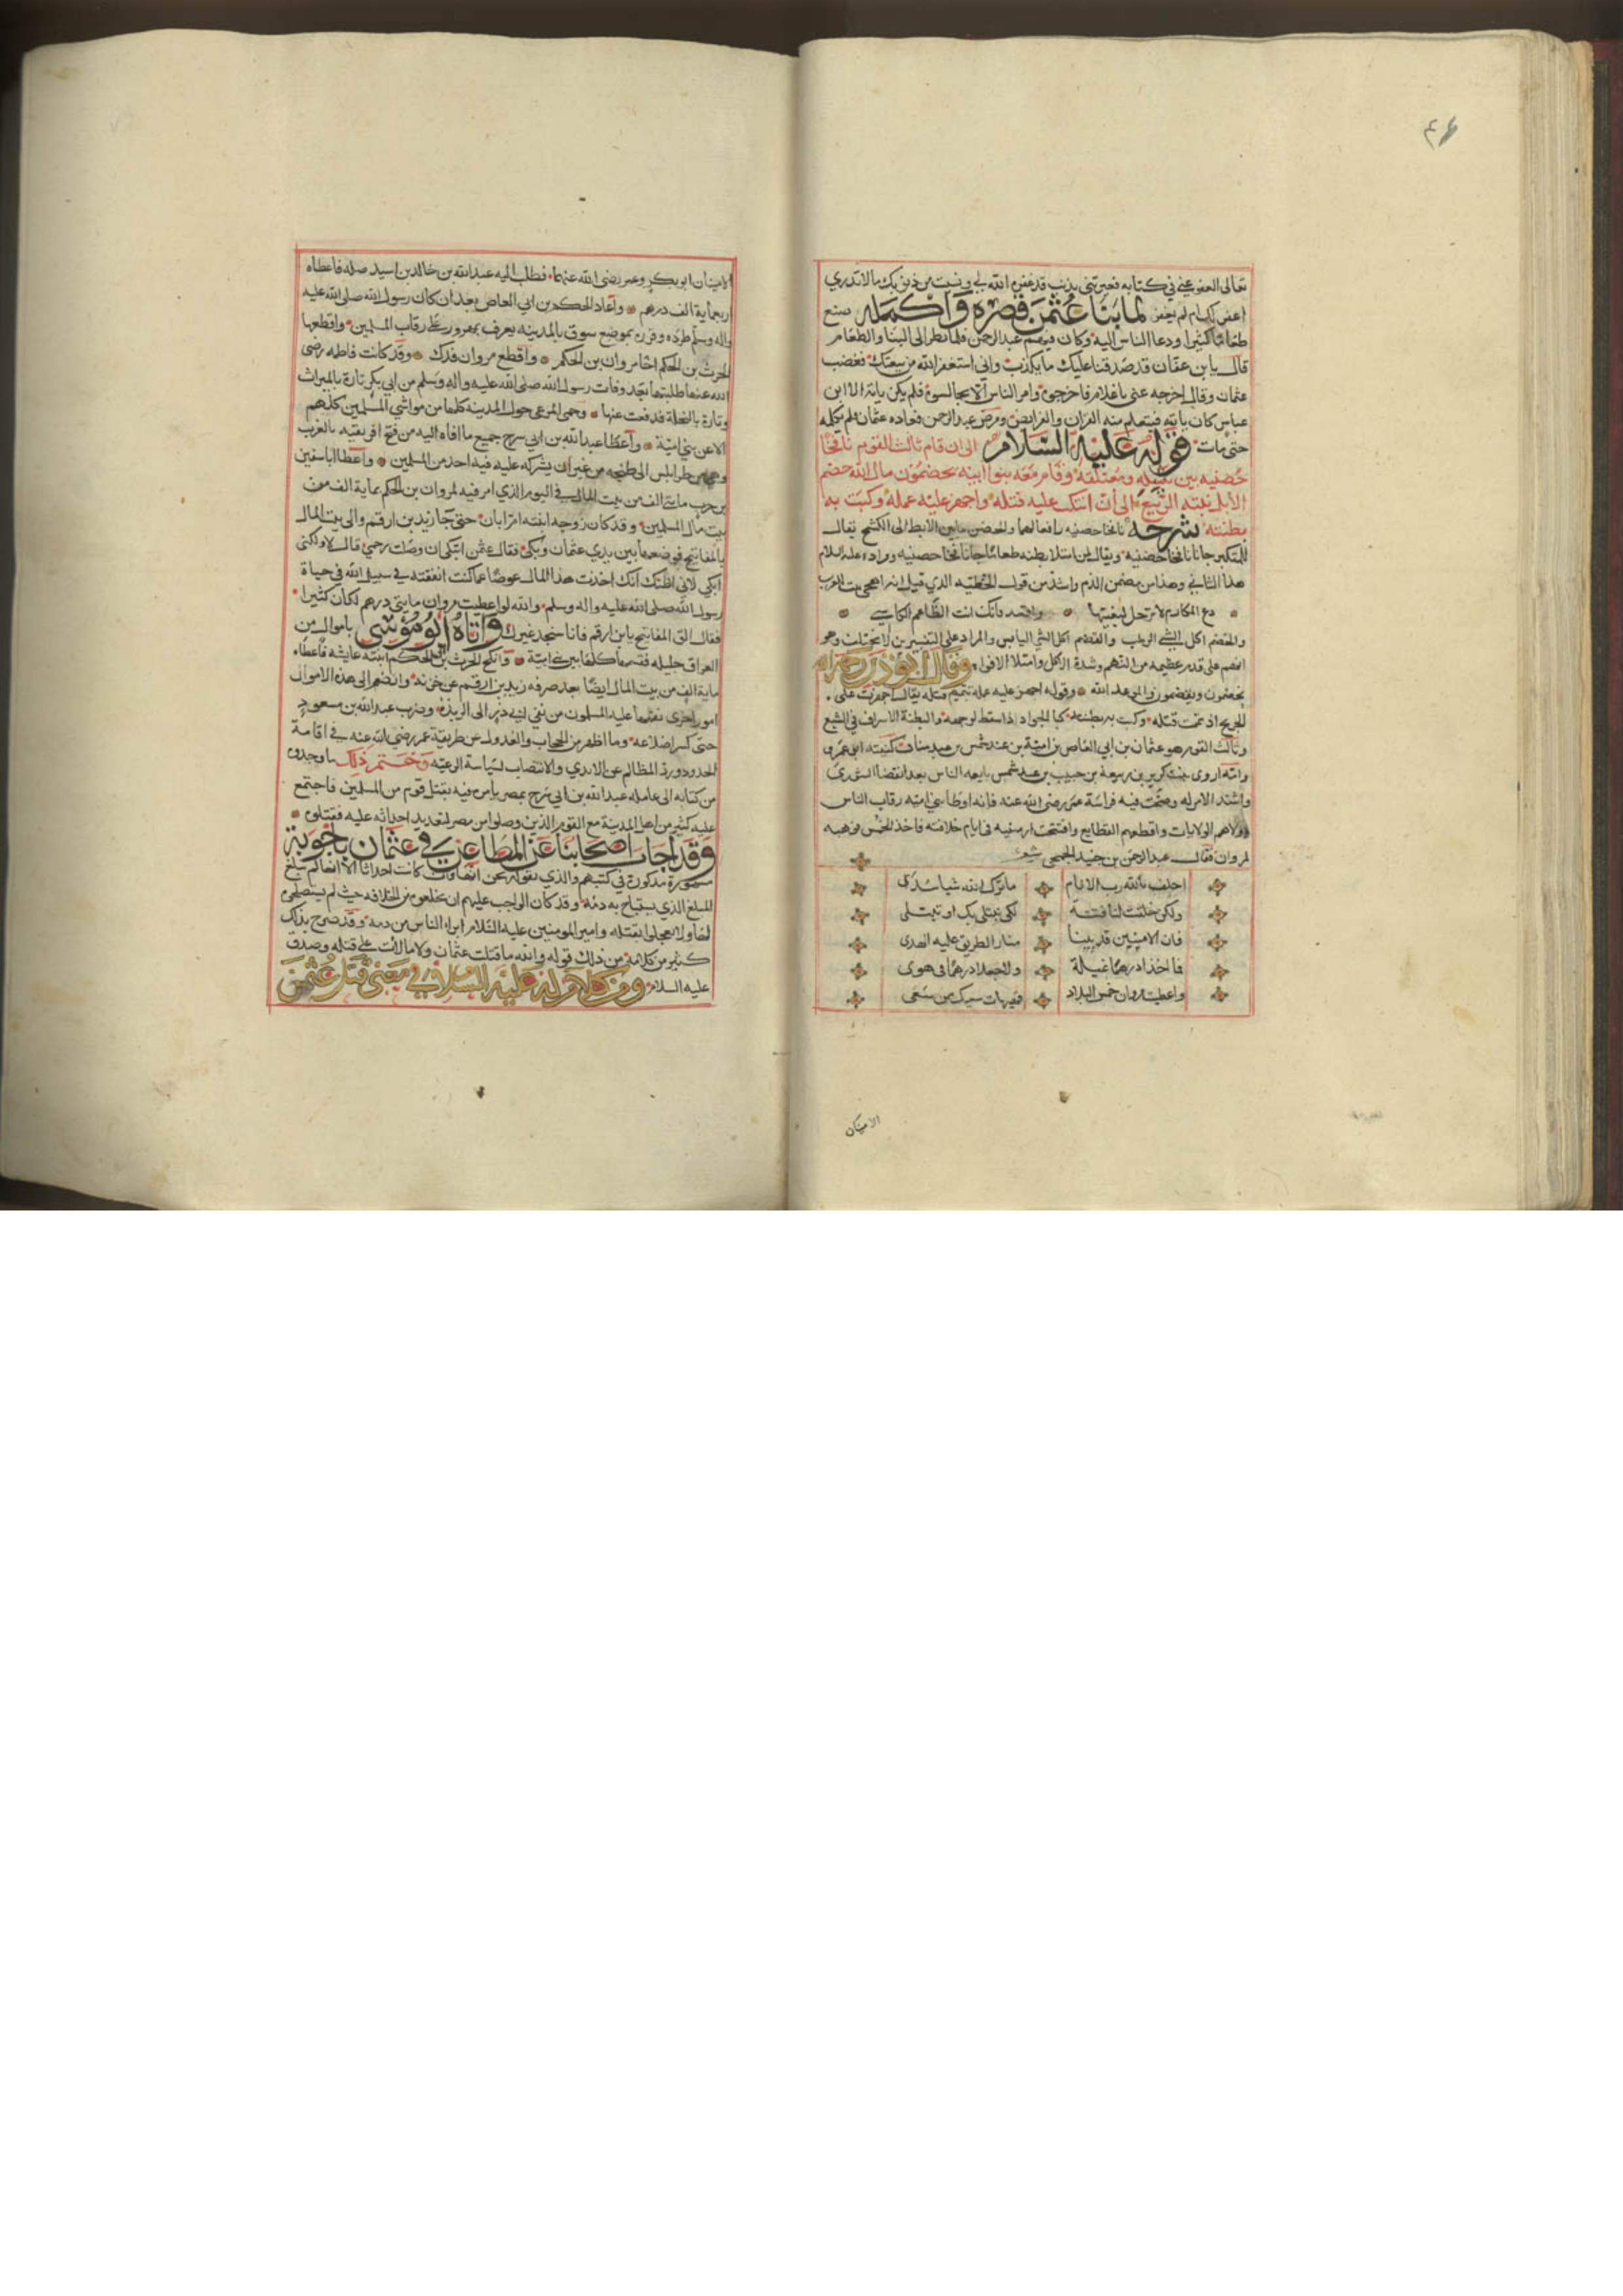 ٤٦
تعالى العفو عني في كتابه فعيرتني بذنب قد غفره الله لي ونسيت من ذنوبك ما لا تدري
اغفر لك ام لم يغفر لما بنا عثمن قصره واكمله صنع
طعاما كثيرا ودعا الناس اليه وكان فيهم عبد الرحمن فلما نظر الى البنا والطعام
قال يا بن عفان قد صدقنا عليك ما يكذب واني استعيذ الله من بيعتك فغضب
عثمان وقال اخرجه عني يا غلام فاخرجوه وامر الناس الا يجالسوه فلم يكن ياته الا ابن
عباس كان ياتيه فيتعلم منه القران والفرايض ومرض عبد الرحمن فعاده عثمان فلم يكلمه
حتى مات قوله عليه السلام الى ان قام ثالث القوم نافجا
حضنيه بين نثيله ومعتلفه وقام معه بنوا ابيه يخضمون مال الله خضم
الابل نبتة الربيع الى ان انتكث عليه فتله واجهز عليه عمله وكبت به
بطنته شرحه نافجا حضنيه رافعا لهما والحضن ما بين الابط الى الكشح يقال
للمتكبر جانا نافجا حضنيه ويقال لمن امتلا بطنه طعاما جانا نافجا حضنيه ومراده عليه السلام
هذا الثاني وهذا من ممض الذم واشد من قول الحطيه الذي قيل انه اهجى بيت للعرب
دع المكارم لا ترحل لبغيتها واقعد فانك انت الطاعم الكاسي
والخضم اكل الشي الرطب والقضم اكل الشي اليابس والمراد على التفسيرين لا يختلف وهو
انهم على قدم عظيمه من النهم وشدة الاكل وامتلا الافواه وقال ابو ذر رحمه الله
يخضمون ونقضم والموعد الله وقوله اجهز عليه عمله تتميم قتله يقال اجهزت على
الجريح اذ تممت قتله وكبت به بطنته كبا الجواد اذا سقط لوجهه والبطنة الاسراف في الشبع
وثالث القوم هو عثمان بن ابي العاص بن امية بن عبد شمس بن عبد مناف كنيته ابو عمرو
وامه اروى بنت كريز بن ربيعة بن حبيب بن عبد شمس بايعه الناس بعد انقضا الشورى
واشتد الامر له وصحت فيه فراسة عمر رضي الله عنه فانه اوطا بني اميه رقاب الناس
وولاهم الولايات واقطعهم القطايع وافتتحت ارمنيه في ايام خلافته فاخذ الخمس فوهبه
لمروان فقال عبد الرحمن بن حنبل الجمحي شعر
احلف بالله رب الانام ما ترك الله شيا سدى
ولكن خلقت لنا فتنة لكي نبتلي بك او تبتلى
فان الامينين قد بينا منار الطريق عليه الهدى
فما اخذا درهما غيلة ولا جعلا درهما في هوى
واعطيت مروان خمس البلاد فهيهات سعيك ممن سعى
الامينان
الامينان ابو بكر وعمر رضي الله عنهما فطلب اليه عبد الله بن خالد بن اسيد صله فاعطاه
اربعماية الف درهم واعاد الحكم بن ابي العاص بعد ان كان رسول الله صلى الله عليه
واله وسلم طرده وقرره بموضع سوق بالمدينه يعرف بمهرور على رقاب المسلمين واقطعها
الحرث بن الحكم اخا مروان بن الحكم واقطع مروان فدك وقد كانت فاطمه رضي
الله عنها طلبتها بعد وفات رسول الله صلى الله عليه واله وسلم من ابي بكر تارة بالميراث
وتارة بالنحلة فدفعت عنها وحمى المرعى حول المدينه كلها من مواشي المسلمين كلهم
الا عن بني امية واعطا عبد الله بن ابي سرح جميع ما افاه اليه من فتح افريقيه بالغرب
وهي من طرابلس الى طنجه من غير ان يشركه عليه فيه احد من المسلمين واعطا ابا سفين
بن حرب مايتي الف من بيت المال في اليوم الذي امر فيه لمروان بن الحكم بماية الف من
بيت مال المسلمين وقد كان زوجه ابنته ام ابان حتى جا زيد بن ارقم والي بيت المال
بالمفاتيح فوضعها بين يدي عثمان وبكى فقال عثمن اتبكي ان وصلت رحمي قال لا ولكني
ابكي لاني اظنك انك اخذت هذا المال عوضا عما كنت انفقته في سبيل الله في حياة
رسول الله صلى الله عليه واله وسلم والله لو اعطيت مروان مايتي درهم لكان كثيرا
فقال الق المفاتيح يا بن ارقم فانا سنجد غيرك واتاه ابو موسى باموال من
العراق جليله فقسمها كلها بين بني امية وانكح الحرث بن الحكم ابنته عايشه فاعطاه
ماية الف من بيت المال ايضا بعد صرفه زيد بن ارقم عن خزنه وانضم الى هذه الاموال
امور اخرى نقمها عليه المسلمون من نفي ابي ذر الى الربذة وضرب عبد الله بن مسعود
حتى كسر اضلاعه وما اظهر من الحجاب والعدول عن طريقة عمر رضي الله عنه في اقامة
الحدود ورد المظالم عن الايدي والانتصاب لسياسة الرعيه وختم ذلك ما وجدوه
من كتابه الى عامله عبد الله بن ابي سرح بمصر يامره فيه بقتل قوم من المسلمين فاجتمع
عليه كثير من اهل المدينة مع القوم الذين وصلوا من مصر لتعديد احداثه عليه فقتلوه
وقد اجاب اصحابنا عن المطاعن في عثمان باجوبة
مشهورة مذكورة في كتبهم والذي نقوله نحن انها وان كانت احداثا الا انها لم تبلغ
المبلغ الذي يستباح به دمه وقد كان الواجب عليهم ان يخلعوه من الخلافه حيث لم يستصلحوه
لها ولا يعجلوا بقتله وامير المومنين عليه السلام ابراء الناس من دمه وقد صرح بذلك
كثير من كلامه من ذلك قوله والله ما قتلت عثمان ولا مالات على قتله وصدق
عليه السلام ومن كلام له عليه السلام في معنى قتل عثمن